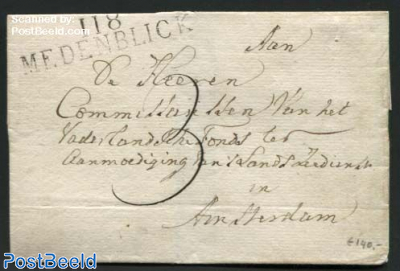 PostBeeld
118
MEDENBLICK
Aan
De Heeren
Commissarissen Van het
Vaderlandsche Fonds ter
Aanmoediging van 's Lands Zeedienst
in
Amsterdam
3
€140,-
PostBeeld